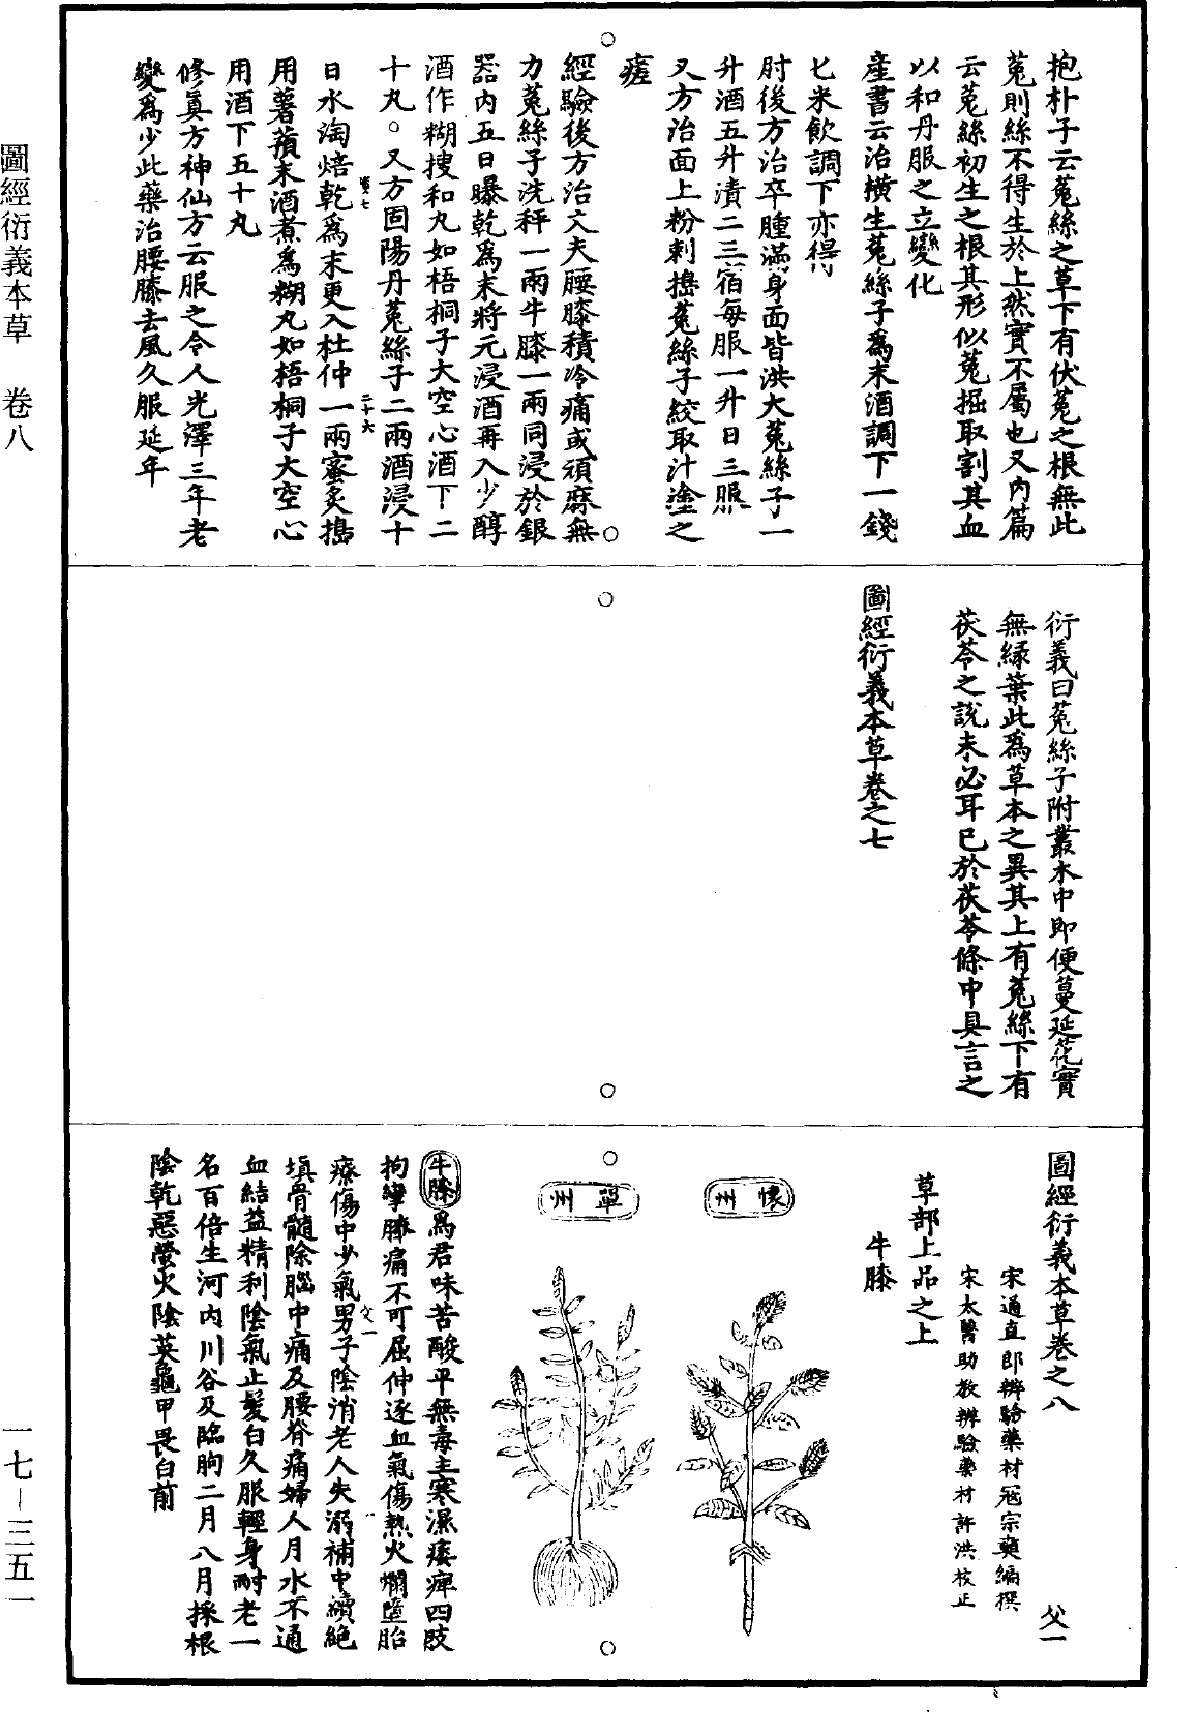 抱朴子云菟絲之草下有伏菟之根無此
菟則絲不得生於上然實不屬也又內篇
云菟絲初生之根其形似菟掘取割其血
以和丹服之立變化
產書云治橫生菟絲子為末酒調下一錢
匕米飲調下亦得
肘後方治卒腫滿身面皆洪大菟絲子一
升酒五升漬二三宿每服一升日三服
又方治面上粉刺搗菟絲子絞取汁塗之
瘥
經驗後方治丈夫腰膝積冷痛或頑麻無
力菟絲子洗秤一兩牛膝一兩同浸於銀
器內五日曝乾為末將元浸酒再入少醇
酒作糊搜和丸如梧桐子大空心酒下二
十丸。又方固陽丹菟絲子二兩酒浸十
日水淘焙乾為末更入杜仲一兩蜜炙搗
用薯蕷末酒煮為糊丸如梧桐子大空心
用酒下五十丸
修真方神仙方云服之令人光澤三年老
變為少此藥治腰膝去風久服延年
衍義曰菟絲子附叢木中即便蔓延花實
無綠葉此為草本之異其上有菟絲下有
茯苓之說未必耳已於茯苓條中具言之
圖經衍義本草卷之七
圖經衍義本草卷之八
父一
宋通直郎辨驗藥材寇宗奭編撰
宋太醫助教辨驗藥材許洪校正
草部上品之上
牛膝
懷州
單州
牛膝為君味苦酸平無毒主寒濕痿痺四肢
拘攣膝痛不可屈伸逐血氣傷熱火爛墮胎
療傷中少氣男子陰消老人失溺補中續絕
填骨髓除腦中痛及腰脊痛婦人月水不通
血結益精利陰氣止髮白久服輕身耐老一
名百倍生河內川谷及臨朐二月八月採根
陰乾惡螢火陰英龜甲畏白前
圖經衍義本草 卷八
一七—三五一